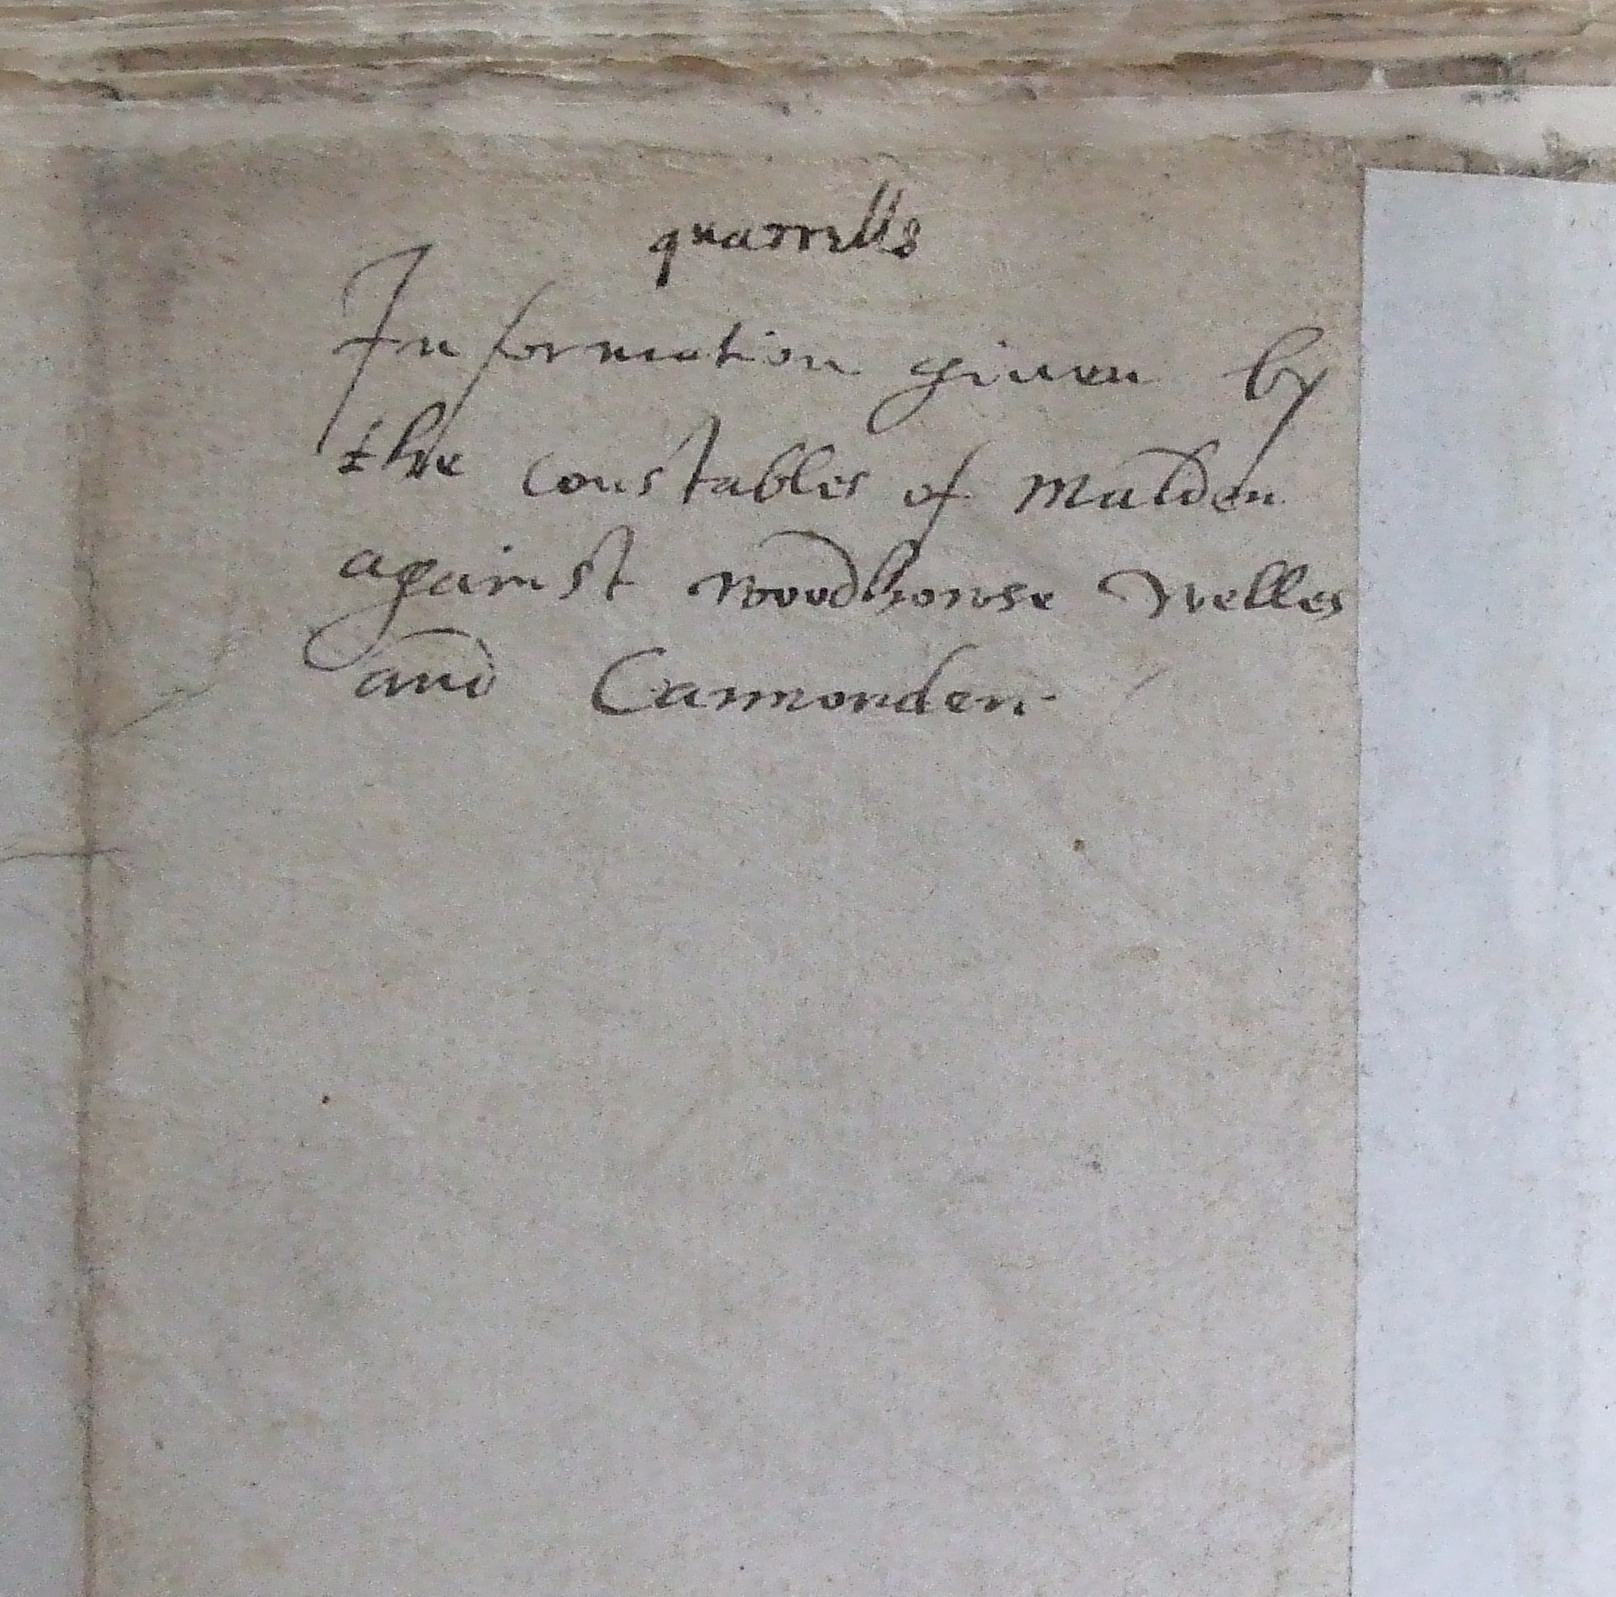 quarrells
Information giuen by
the Constables of Malden
against woodhowse Welles
and Cammonden